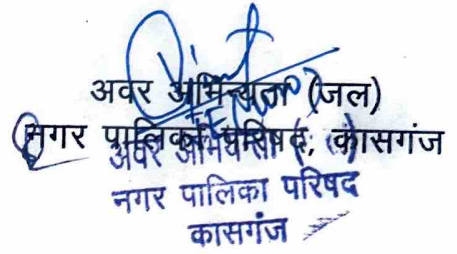 अवर अभियन्ता (जल)
नगर पालिका परिषद, कासगंज
अवर अभियन्ता
नगर पालिका परिषद
कासगंज